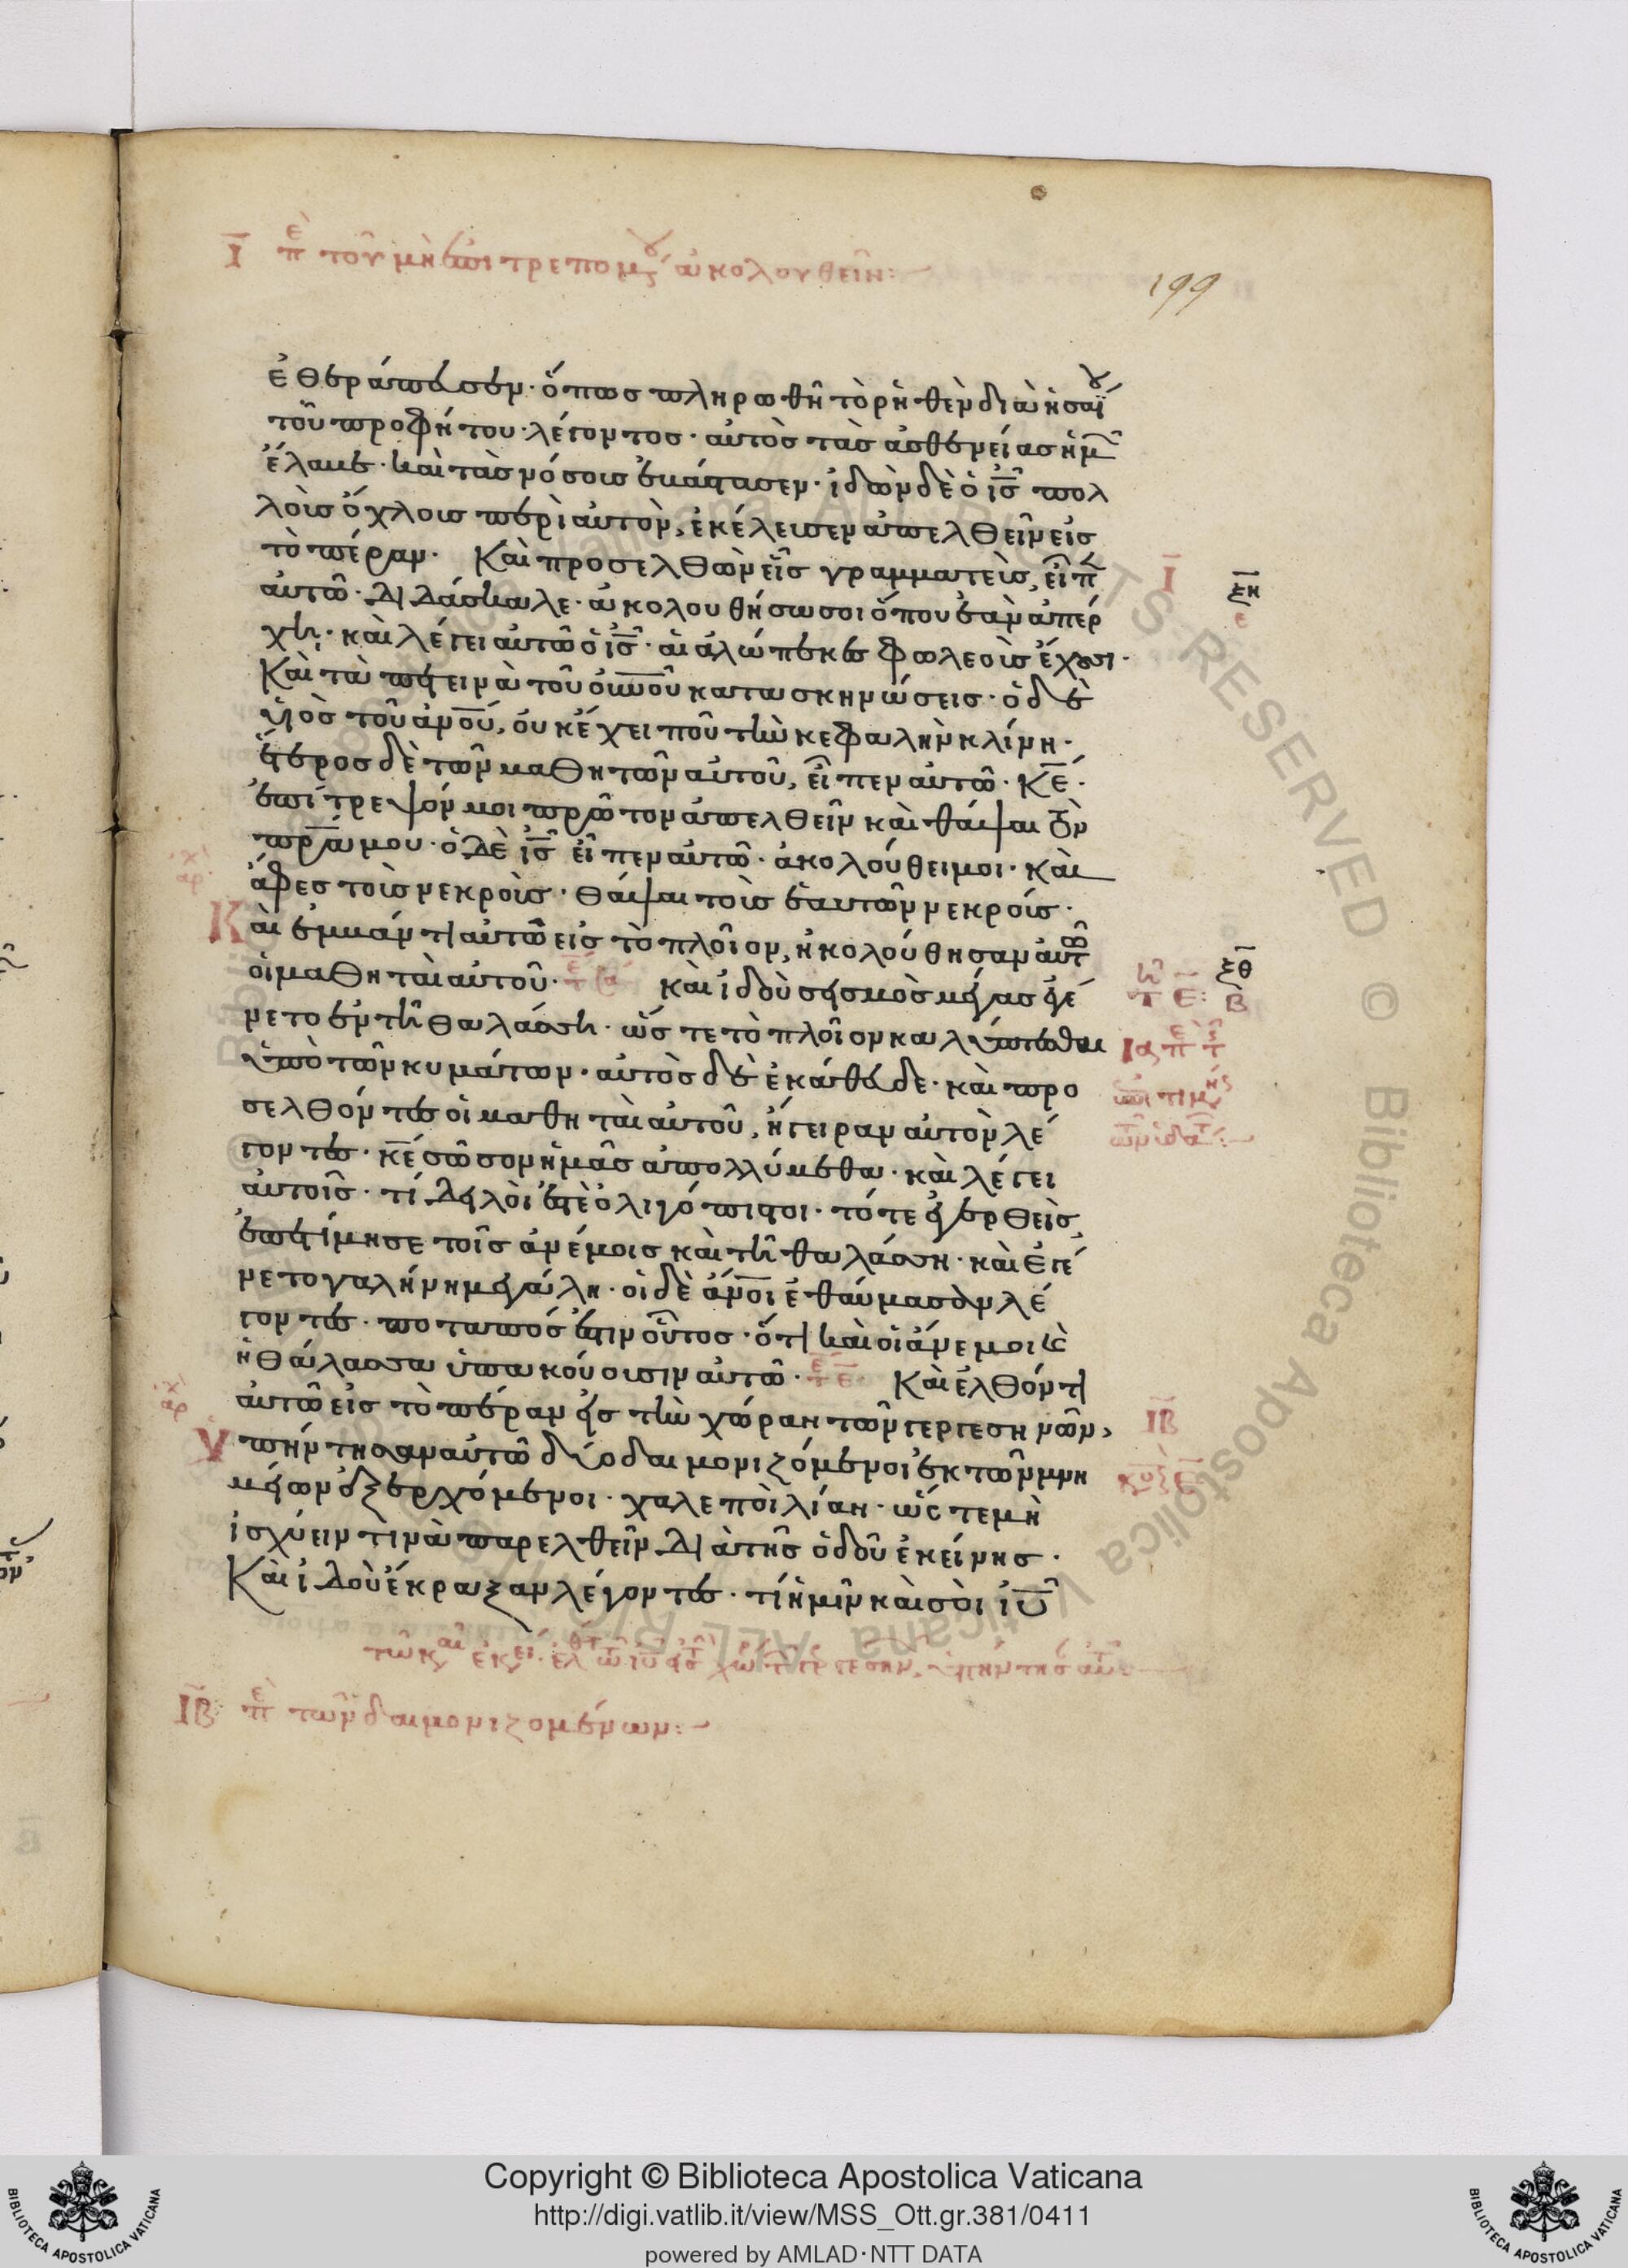 Ι π ε τοῦ μὴ ἐπιτρεπομ ου ἀκολουθεῖν:
199
ἐθεράπευσεν· ὅπως πληρωθῆ τὸ ρηθὲν διὰ ἡσαϊου
τοῦ προφήτου· λέγοντος· αὐτὸς τὰς ἀσθενείας ἡμ
ἔλαβε· καὶ τὰς νόσοις ἐβάστασεν· ἰδὼν δὲ ὁ ις πολ
λοὶς ὄχλοις περὶ αὐτὸν, ἐκέλεισεν ἀπελθεῖν εἰς
τὸ πέραν· Καὶ προσελθὼν εἶς γραμματεὶς, εἶπ
αὐτῶ· Διδάσκαλε· ἀκολουθήσω σοι ὅπου ἐὰν ἀπέρ
χη· καὶ λέγει αὐτῶ ὁ ις· αἱ ἀλώπεκες φωλεοὶς ἔχουσι·
Καὶ τὰ πετεινὰ τοῦ οὐνοῦ κατασκηνώσεις· ὁ δὲ
υἱὸς τοῦ ἀνου, οὐκ ἔχει ποῦ τὴν κεφαλὴν κλίνη·
ἕτερος δὲ τῶν μαθητῶν αὐτοῦ, εἶπεν αὐτῶ· Κε·
ἐπίτρεψόν μοι πρῶτον ἀπελθεῖν καὶ θάψαι τὸν
πρα μου· ὁ Δὲ ις εἶπεν αὐτῶ· ἀκολούθει μοι· καὶ
ἄφες τοὶς νεκροὶς· θάψαι τοὶς ἑαυτῶν νεκροίς·
Καὶ ἐμβάντι αὐτῶ εἰς τὸ πλοῖον, ἠκολούθησαν αὐτῶ
οἱ μαθηταὶ αὐτοῦ· καὶ ἰδοὺ σεισμὸς μέγας ἐγέ
νετο ἐν τῆ θαλάσση· ὥς τε τὸ πλοῖον καλύπτεσθαι
ὑπὸ τῶν κυμάτων· αὐτὸς δὲ ἐκάθευδε· καὶ προ
σελθόντες οἱ μαθηταὶ αὐτοῦ, ἤγειραν αὐτὸν λέ
γοντες· κε σῶσον ἡμᾶς ἀπολλύμεθα· καὶ λέγει
αὐτοῖς· τί Δειλοί ἐστὲ ὀλιγόπιστοι· τότε ἐγερθεὶς,
ἐπετίμησε τοῖς ἀνέμοις καὶ τῆ θαλάσση· καὶ ἐγέ
νετο γαλήνη μεγάλη· οἱ δὲ ἄνοι ἐθαύμασαν λέ
γοντες· ποταπός ἐστιν οὗτος· ὅτι καὶ οἱ ἄνεμοι καὶ
ἡ θάλασσα ὑπακούουσιν αὐτῶ· Καὶ ἐλθόντι
αὐτῶ εἰς τὸ πέραν εἰς τὴν χώραν τῶν γεργεσηνῶν,
Ὑπήντησαν αὐτῶ δύο δαιμονιζόμενοι ἐκ τῶν μνη
μείων ἐξερχόμενοι· χαλεποὶ λίαν· ὥς τε μὴ
ἰσχύειν τινὰ παρελθεῖν Διὰ τῆς ὁδοῦ ἐκείνης·
Καὶ ἰδοὺ ἔκραξαν λέγοντες· τί ἡμῖν καὶ σοὶ ιυ
Ι
ξη
ξθ
β
ΙΒ
ΙΒ π ε τῶν δαιμονιζομένων:
Copyright © Biblioteca Apostolica Vaticana
http://digi.vatlib.it/view/MSS_Ott.gr.381/0411
powered by AMLAD·NTT DATA
BIBLIOTECA APOSTOLICA VATICANA
BIBLIOTECA APOSTOLICA VATICANA